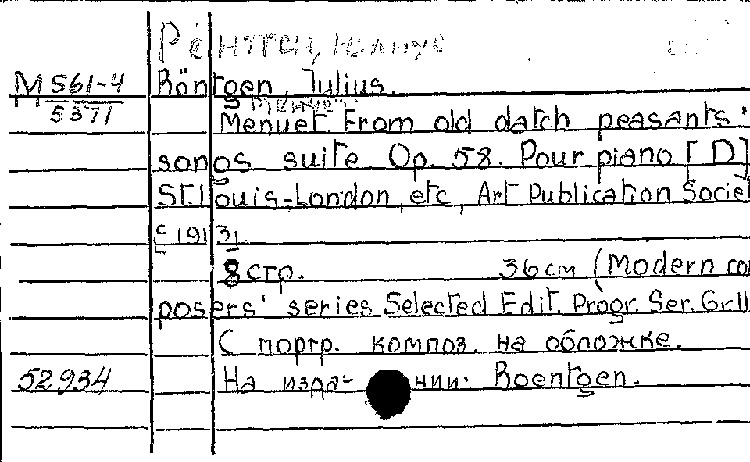 Рёнтген, Юлиус
М 561-4
5371
Röntgen, Julius.
Менуэт
Menuet from old datch peasants'
songs suite Op. 52. Pour piano [D]
St. Louis-London, etc, Art Publication Societ
с 1913
8 стр. 36 см (Modern com
posers' series Selected Edit. Progr. Ser.
С портр. композ. на обложке.
52934 На издании: Roentgen.